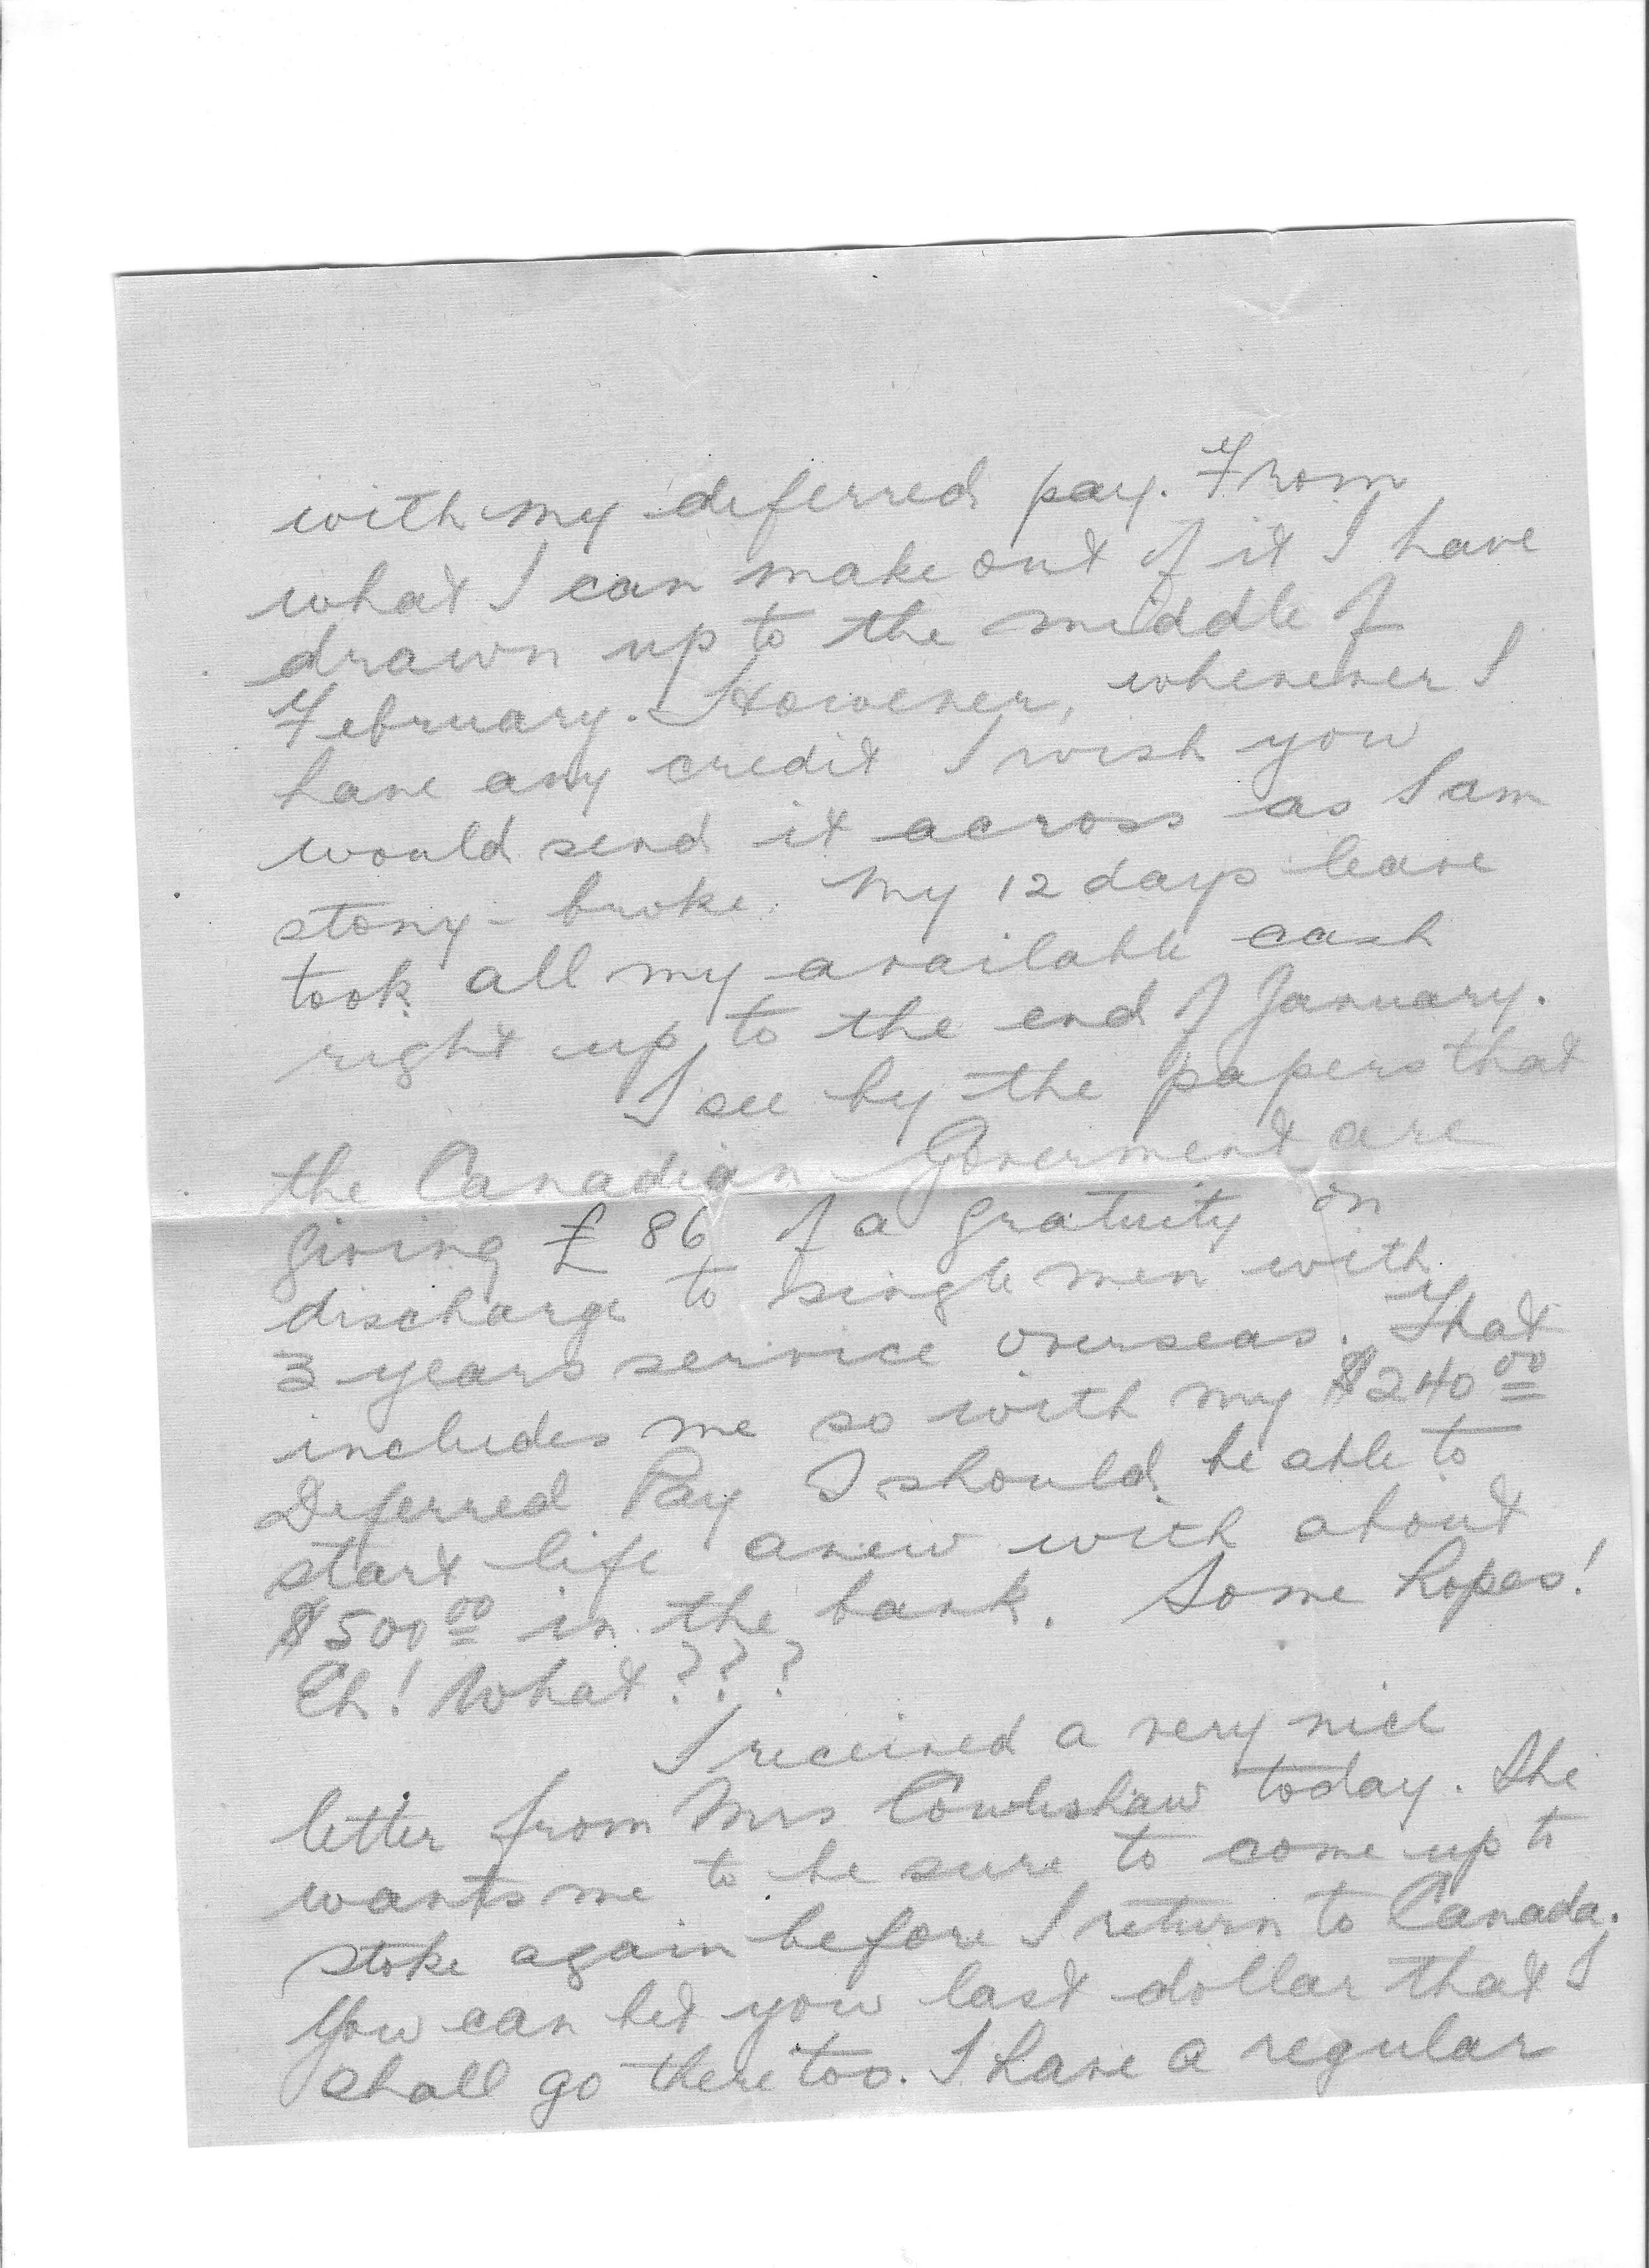 with my deferred pay. From
what I can make out of it I have
drawn up to the middle of
February. However, whenever I
have any credit I wish you
would send it across as I am
stony-broke. My 12 days leave
took all my available cash
right up to the end of January.
I see by the papers that
the Canadian Goverment are
giving £86 of a gratuity on
discharge to single men with
3 years service overseas. That
includes me so with my $240.00
Deferred Pay I should be able to
start life anew with about
$500.00 in the bank. Some hopes!
Eh! What???
I received a very nice
letter from Mrs Cowlishaw today. She
wants me to be sure to come up to
Stoke again before I return to Canada.
You can bet you last dollar that I
shall go there too. I have a regular